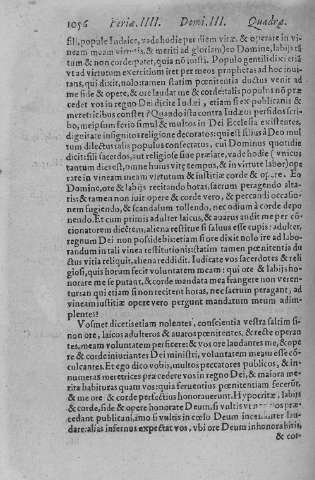 1056 Feriæ. IIII. Domi. III. Quadrœ.
fili, popule Iudaice, vade hodie per diem vitæ, & operare in vi-
neam meam virtutis, & meriti ad gloriam) eo Domine, labijs tã
tum & non corde patet, quia nõ iuisti. Populo gentili dixi etiã
vt ad virtutum exercitium iret per meos prophetas ad hoc inui-
tans, qui dixit, nolo: tamen statim pœnitentia ductus venit ad
me fide & opere, & ore laudat me & corde: talis populus nõ præ
cedet vos in regno Dei dicite Iudæi, etiam si ex publicanis &
meretricibus constet? Quando ista contra Iudæos perfidos scri-
bo, me ipsum ferio simul & multos in Dei Ecclesia existentes,
dignitate insignitos religione decoratos: qui est filius à Deo mul
tum dilectus: talis populus consecratus, cui Dominus quotidie
dicit: fili sacerdos, aut religiose siue præfate, vade hodie (vnicus
tantum dies est, omne huius vitę tempus, & in virtute labor) ope
rare in vineam meam virtutum & iustitiæ corde & opere. Eo
Domine, ote & labijs recitando horas, sacrum peragendo alta-
ris: & tamen non iuit opere & corde vero, & peccandi occasio-
nem fugiendo, & scandalum tollendo, nec odium à corde depo
nendo. Et cum primis adulter laicus, & auarus audit me per cō-
cionatorem dicẽtem, aliena restitue si saluus esse cupis: adulter,
regnum Dei non possidebis: etiam si ore dixit nolo ire ad labo-
randum in tali vinea restitutionis: statim tamen pœnitentia du
ctus vitia reliquit, aliena reddidit. Iudicate vos sacerdotes & reli
giosi, quis horum fecit voluntatem meam: qui ore & labijs ho-
norare me se putant, & corde mandata mea frangere non veren-
tur: an qui etiam si non recitent horas, nec sacrum peragant, ad
vineam iustitiæ opere vero pergunt mandatum meum adim-
plentes?
Vosmet dicetis etiam nolentes, conscientia vestra saltim si-
non ore, laicos adulteros & auaros pœnitentes, & recte operan
tes, meam voluntatem perficere: & vos ore laudantes me, & ope
re & corde iniuriantes Dei ministri, voluntatem meam esse cõ-
culcantes. Et ego dico vobis, multos peccatores publicos, & in-
numeras meretrices præcedere vos in regno Dei, & maiora me-
rita habituras quam vos: quia feruentius pœnitentiam fecerũt,
& me ore & corde perfectius honorauerunt. Hypocritæ, labijs
& corde, fide & opere honorate Deum, si vultis vt non vos præ-
cedant publicani, imo si vultis in cœlo Deum incessanter lau-
dare: alias infernus expectat vos, vbi ore Deum inhonorabitis,
& cor-